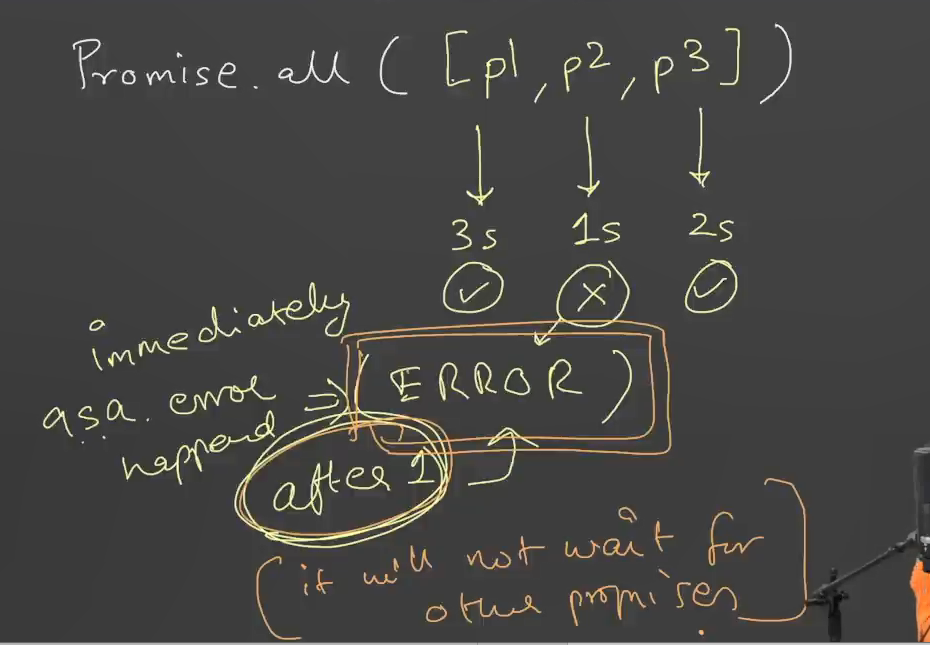 Promise.all ( [p1, p2, p3] )
3s 1s 2s
immediately
a s a. error
happend
(ERROR)
after 1
(it will not wait for
other promises)